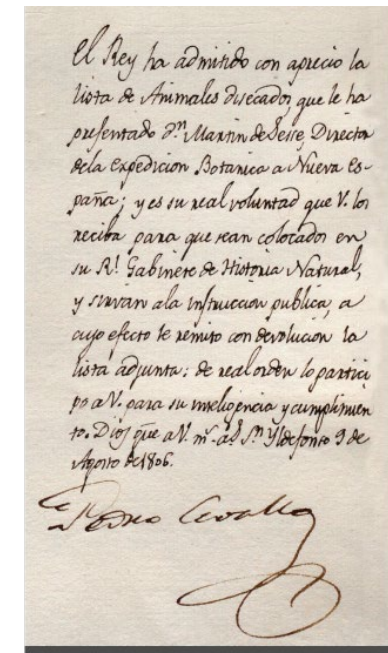 El Rey ha admitido con aprecio la
lista de Animales disecados que le ha
presentado Dn. Martin de Sesse, Director
dela Expedicion Botanica a Nueva Es-
paña; y es su real voluntad que V. los
reciba para que sean colocados en
su Rl. Gabinete de Historia Natural,
y sirvan ala instruccion publica, a
cuyo efecto le remito con devolucion la
lista adjunta: de real orden lo partici
po a V. para su inteligencia y cumplimien
to. Dios gue. a V. ms. as. Sn. Yldefonso 9 de
Agosto de 1806.
Pedro Cevallos